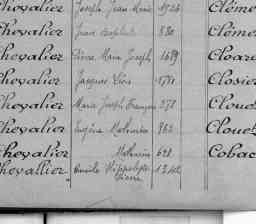 Chevalier Joseph Jean Marie 1924 Clém
Chevalier Jean Baptiste 880 Clém
Chevalier Pierre Marie Joseph 1689 Cloar
Chevalier Jacques Closier
Chevalier Marie Joseph François 278 Cloue
Chevalier Eugène Mathurin 862 Clouet
Chevalier Mathurin 628 Cobac
Chevallier Hippolyte
Pierre